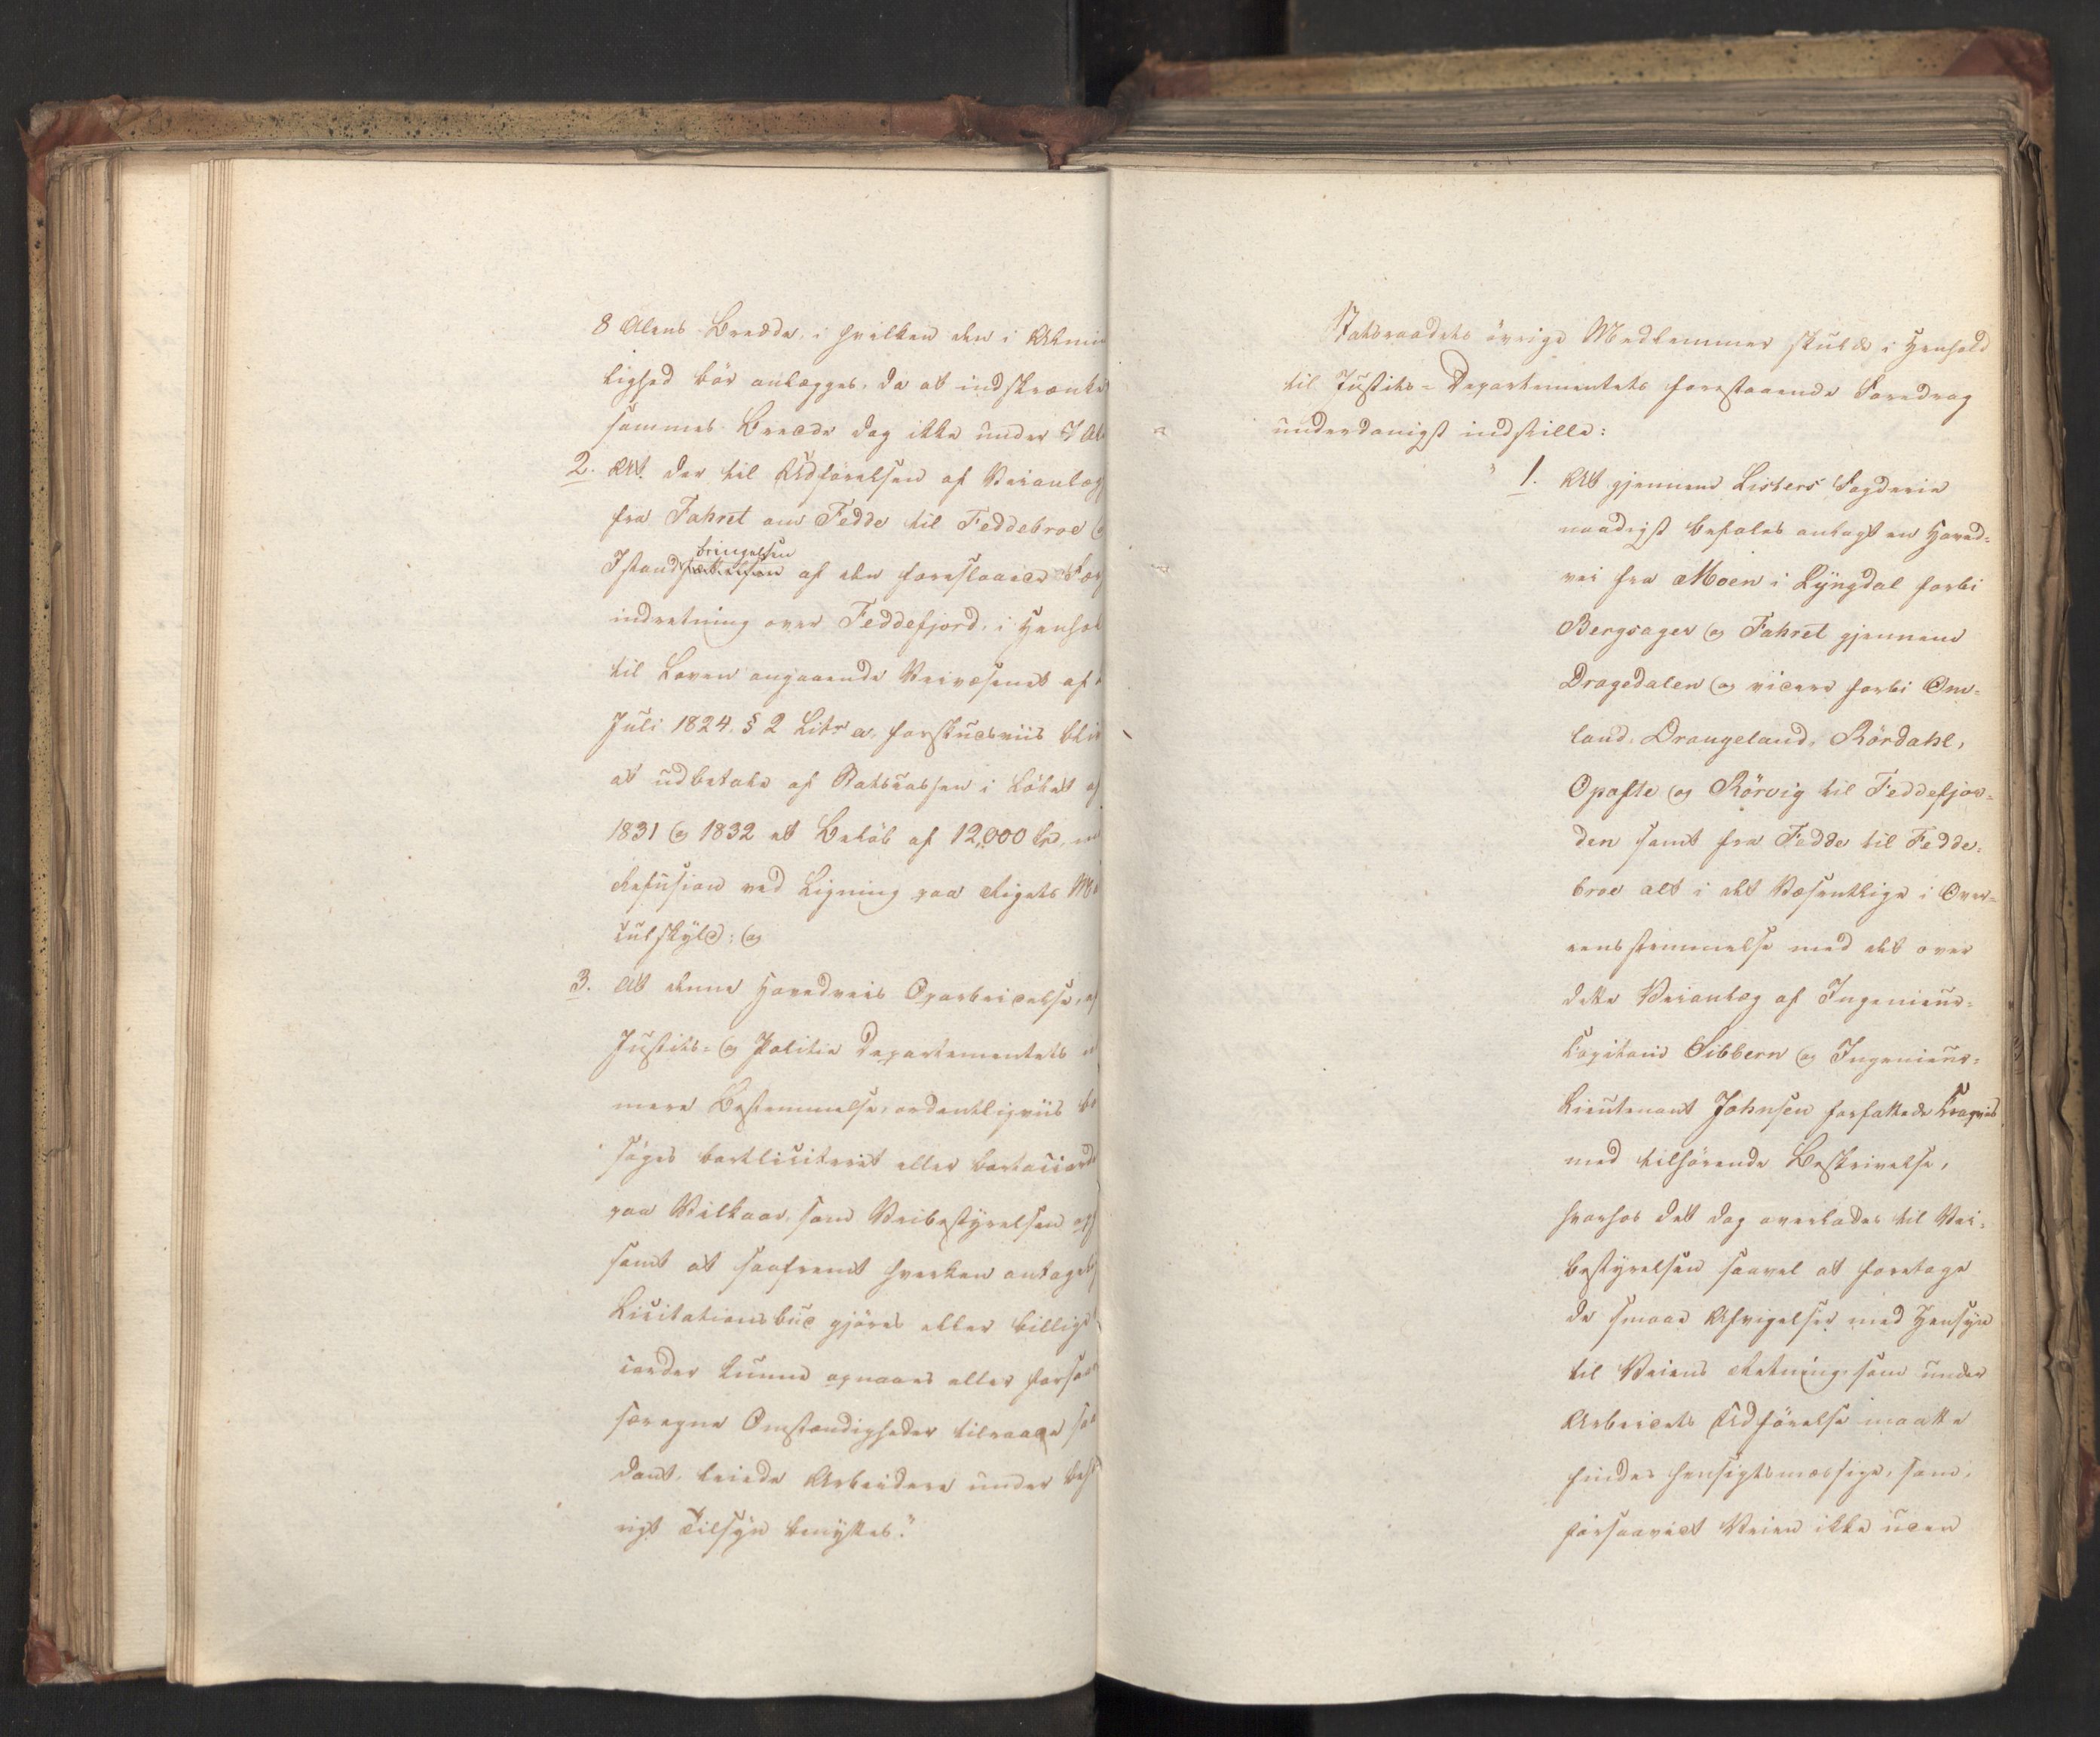 8 Alens Bredde, i hvilken den i Almin
lighed bör anlægges, da at indskrænke
sammes Brede dog ikke under 7 Al
2. At der til Udförelsen af Veianlæg
fra Fahret om Fedde til Feddebroe og
Istandbringelsen af den foreslaaede Fær
indretning over Feddefjord, i Henhol
til Loven angaaende Veivæsenet af
Juli 1824, § 2 Litr a, forskudsviis bliv
at udbetale af Statscassen i Löbet af
1831 og 1832 et Belöb af 12,000 Spd, m
Refusion ved Ligning paa Rigets Ma
culskyld; og
3. At denne Hovedveis Oparbeidelse, ef
Justits- og Politie Departementets n
mere Bestemmelse, ordentligviis be
söges bortliciteret eller bortaccorde
paa Vilkaar, som Veibestyrelsen op
samt at saafremt hverken antageli
Licitationsbud gjöres eller billige
corder kunne opnaaes eller forsaa
særegne Omstændigheder tilraade saa
dant, leiede Arbeidere under behö
rigt Tilsyn benyttes."
Statsraadets övrige Medlemmer skulde i Henhold
til Justits-Departementets forestaaende Foredrag
underdanigst indstille:
" 1. At gjennem Listers Fogderie
naadigst befales anlagt en Hoved-
vei fra Moen i Lyngdal forbi
Bergsager og Fahret gjennem
Dragedalen og videre forbi Om-
land, Drangeland, Rördahl,
Opofte og Rörvig til Feddefjor-
den samt fra Fedde til Fedde-
broe alt i det Væsentlige i Over-
eensstemmelse med det over
dette Veianlæg af Ingenieur-
Capitain Sibbern og Ingenieur-
Lieutenant Johnsen forfattede Croquis
med tilhörende Beskrivelse,
hvorhos det dog overlades til Vei-
bestyrelsen saavel at foretage
de smaae Afvigelser med Hensyn
til Veiens Retning, som under
Arbeidets Udförelse maatte
findes hensigtsmæssige, som,
forsaavidt Veien ikke uden